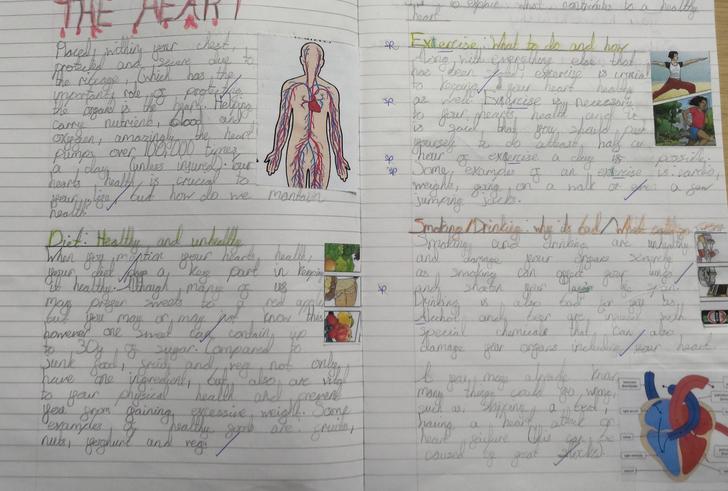 THE HEART
Placed, within your chest,
protected and secure due to
the ribcage, (which has the
important role of protecting
the organs) is the heart. Helping
carry nutrients, blood and
oxygen, amazingly the heart
pumps over 100,000 times
a day (unless injured) our
hearts health is crucial to
your life, but how do we maintain
health
Diet: Healthy and unhealthy
When you mention your hearts health,
your diet plays a key part in keeping
it healthy. Although many of us
may prefer sweets to a red apple
but you may or may not know this
powerful one sweet can contain up
to 30g of sugar. Compared to
junk food, fruit and veg not only
have one ingredient, but also are vital
to your physical health and prevent
you from gaining excessive weight. Some
examples of healthy foods are: fruits,
nuts, yoghurt and veg.
what contributes to a healthy
heart.
sp Exercise: What to do and how
Along with everything else that
has been exercise is crucial
to keeping your heart healthy
sp as well. Exercise is necessary
to your hearts health and it
is said that you should push
yourself to do atleast half an
sp hour of exercise a day if possible.
sp Some examples of an exercise is: cardio,
weights, going on a walk or a few
jumping jacks.
Smoking/Drinking: why its bad/What
Smoking and drinking are unhealthy
and damage your organs
as smoking can affect your lungs
sp and shorten your
Drinking is also bad for you too.
Alcohol and beer are
special chemicals that can also
damage your organs including your heart.
As you may already know,
many things could go wrong,
such as: skipping a beat,
having a heart attack or
heart failure this can be
caused by great